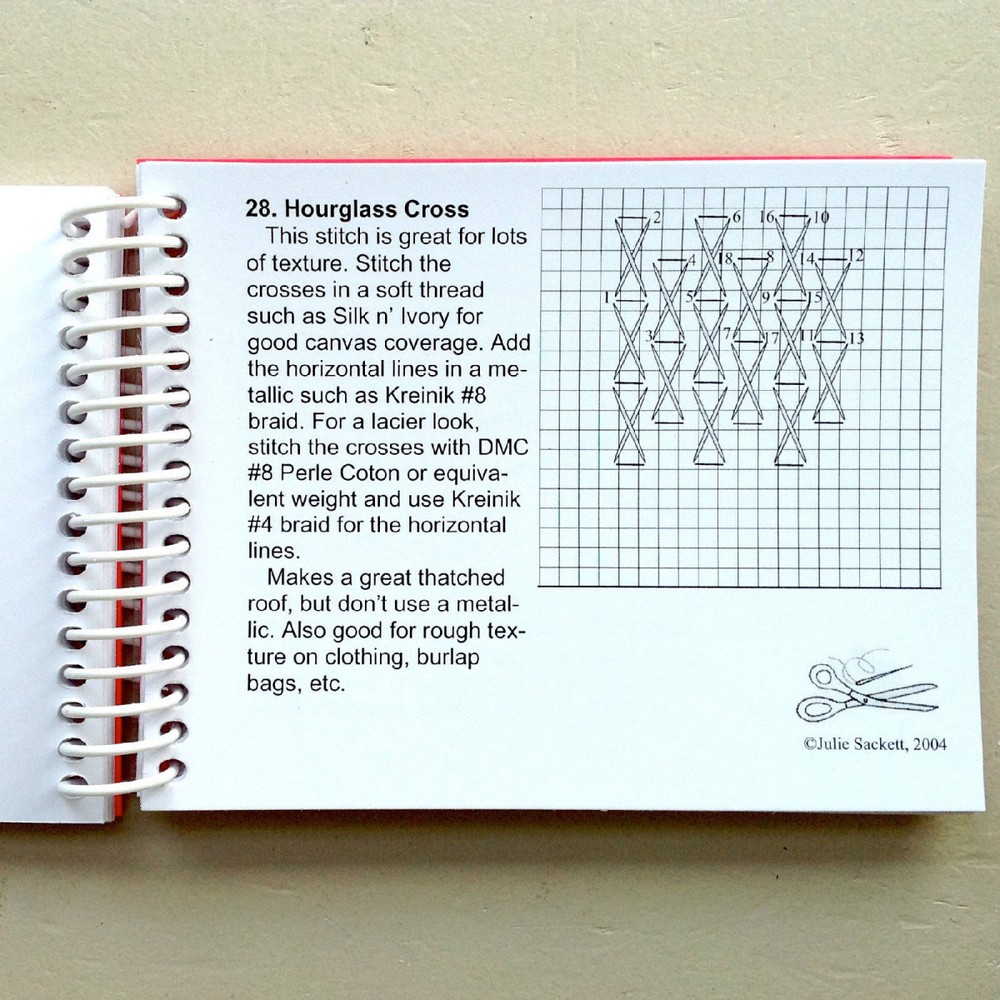 28. Hourglass Cross
This stitch is great for lots
of texture. Stitch the
crosses in a soft thread
such as Silk n' Ivory for
good canvas coverage. Add
the horizontal lines in a me-
tallic such as Kreinik #8
braid. For a lacier look,
stitch the crosses with DMC
#8 Perle Coton or equiva-
lent weight and use Kreinik
#4 braid for the horizontal
lines.
Makes a great thatched
roof, but don't use a metal-
lic. Also good for rough tex-
ture on clothing, burlap
bags, etc.
2 6 16 10
4 18 8 14 12
1 5 9 15
3 7 17 11 13
©Julie Sackett, 2004